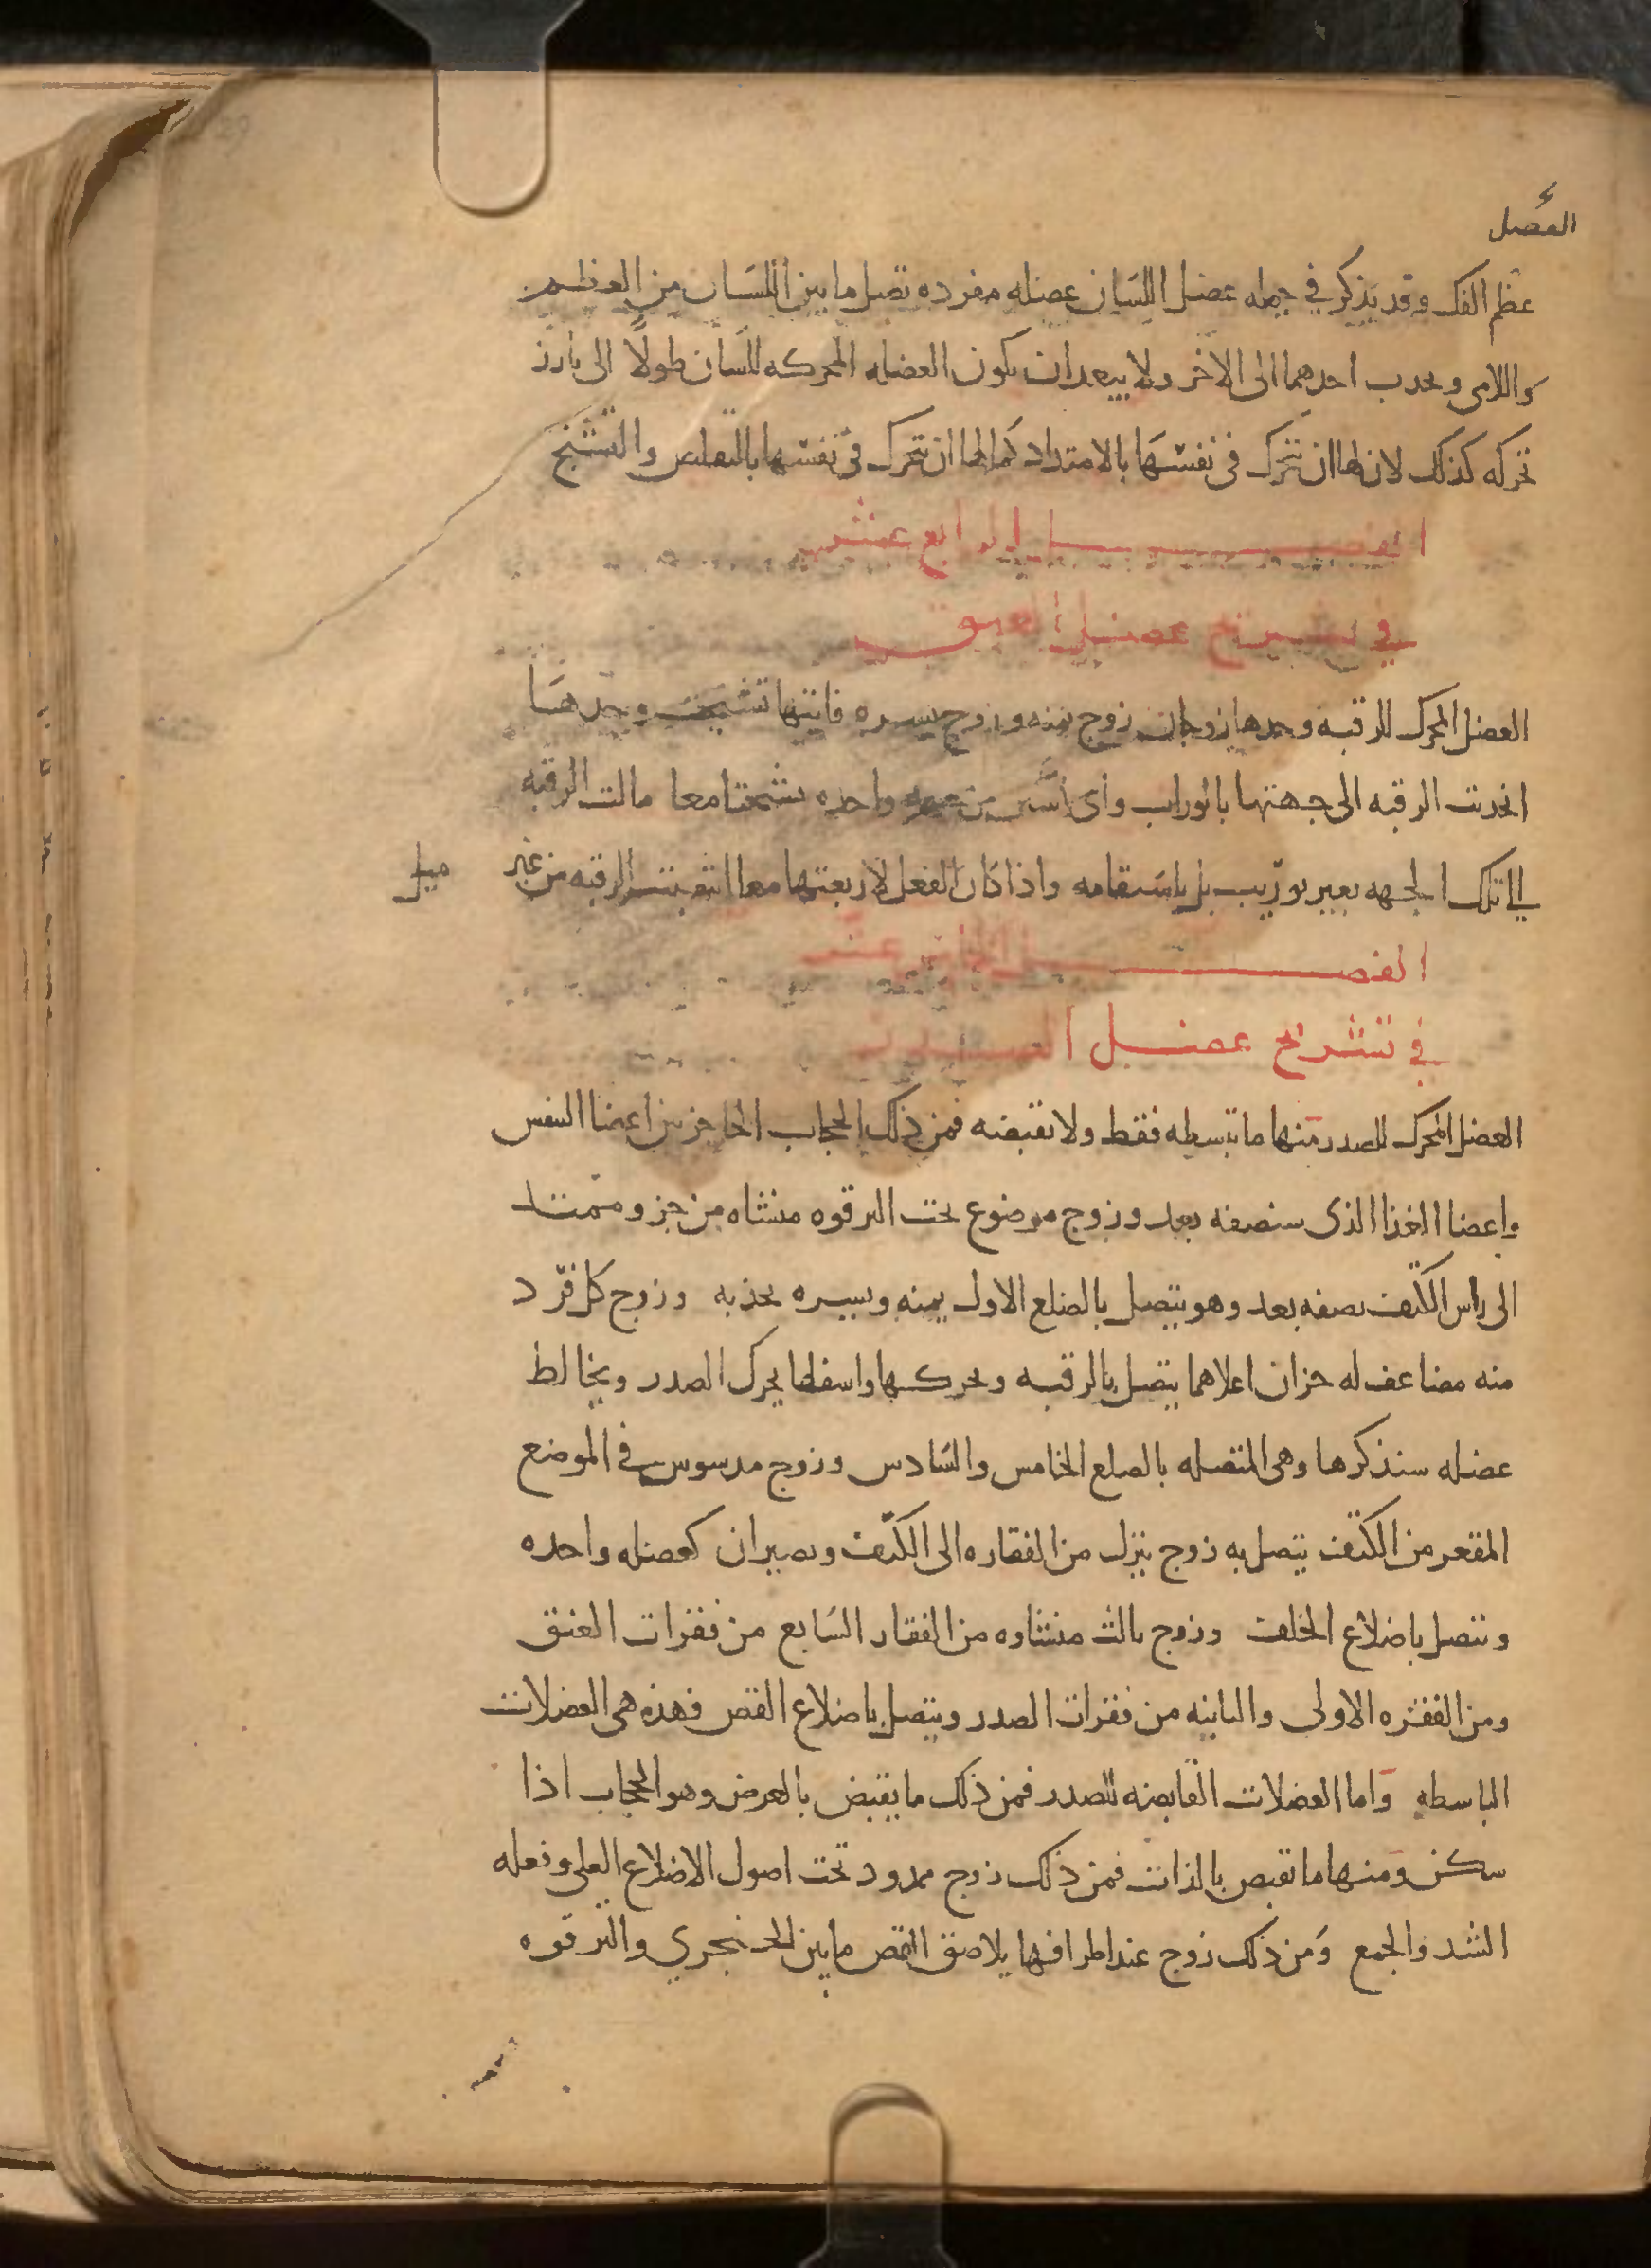 العضل
عظم الفك وقد يذكر في جمله عضل اللسان عضله مفرده تصل ما بين اللسان من العظم
واللامى ويجدب احدهما الى الاخر ولا يبعد ان يكون العضله المحركه للسان طولا الى بارز
تحركه كذلك لان لها ان تتحرك في نفسها بالامتداد كما لها ان تتحرك في نفسها بالتقلص والتشنج
الفصل الرابع عشر
في تشريح عضل العنق
العضل المحرك للرقبه وحدها زوجان زوج يمنه وزوج يسره فايتها تشنجت وحدها
انجدبت الرقبه الى جهتها بالوراب واى اثنين من جهه واحده تشنجتا معا مالت الرقبه
الى تلك الجهه بغير توريب بل باستقامه واذا كان الفعل لاربعتها معا انتصبت الرقبه من غير ميل
الفصل الخامس عشر
في تشريح عضل الصدر
العضل المحرك للصدر منها ما تبسطه فقط ولا تقبضه فمن ذلك الحجاب الحاجز بين اعضا التنفس
واعضا الغذا الذى سنصفه بعد وزوج موضوع تحت الترقوه منشاه من جزو ممتد
الى راس الكتف نصفه بعد وهو يتصل بالضلع الاول يمنه ويسره يجذبه وزوج كل فرد
منه مضاعف له جزان اعلاهما يتصل بالرقبه ويحركها واسفلها يحرك الصدر ويخالط
عضله سنذكرها وهى المتصله بالضلع الخامس والسادس وزوج مدسوس في الموضع
المقعر من الكتف يتصل به زوج ينزل من الفقاره الى الكتف ويصيران كعضله واحده
وتتصل باضلاع الخلف وزوج ثالث منشاوه من الفقار السابع من فقرات العنق
ومن الفقره الاولى والثانيه من فقرات الصدر ويتصل باضلاع القص فهذه هى العضلات
الباسطه واما العضلات القابضه للصدر فمن ذلك ما يقبض بالعرض وهو الحجاب اذا
سكن ومنها ما تقبض بالذات فمن ذلك زوج ممدود تحت اصول الاضلاع العلى وفعله
الشد والجمع ومن ذلك زوج عند اطرافها يلاصق القص ما بين الخنجري والترقوه